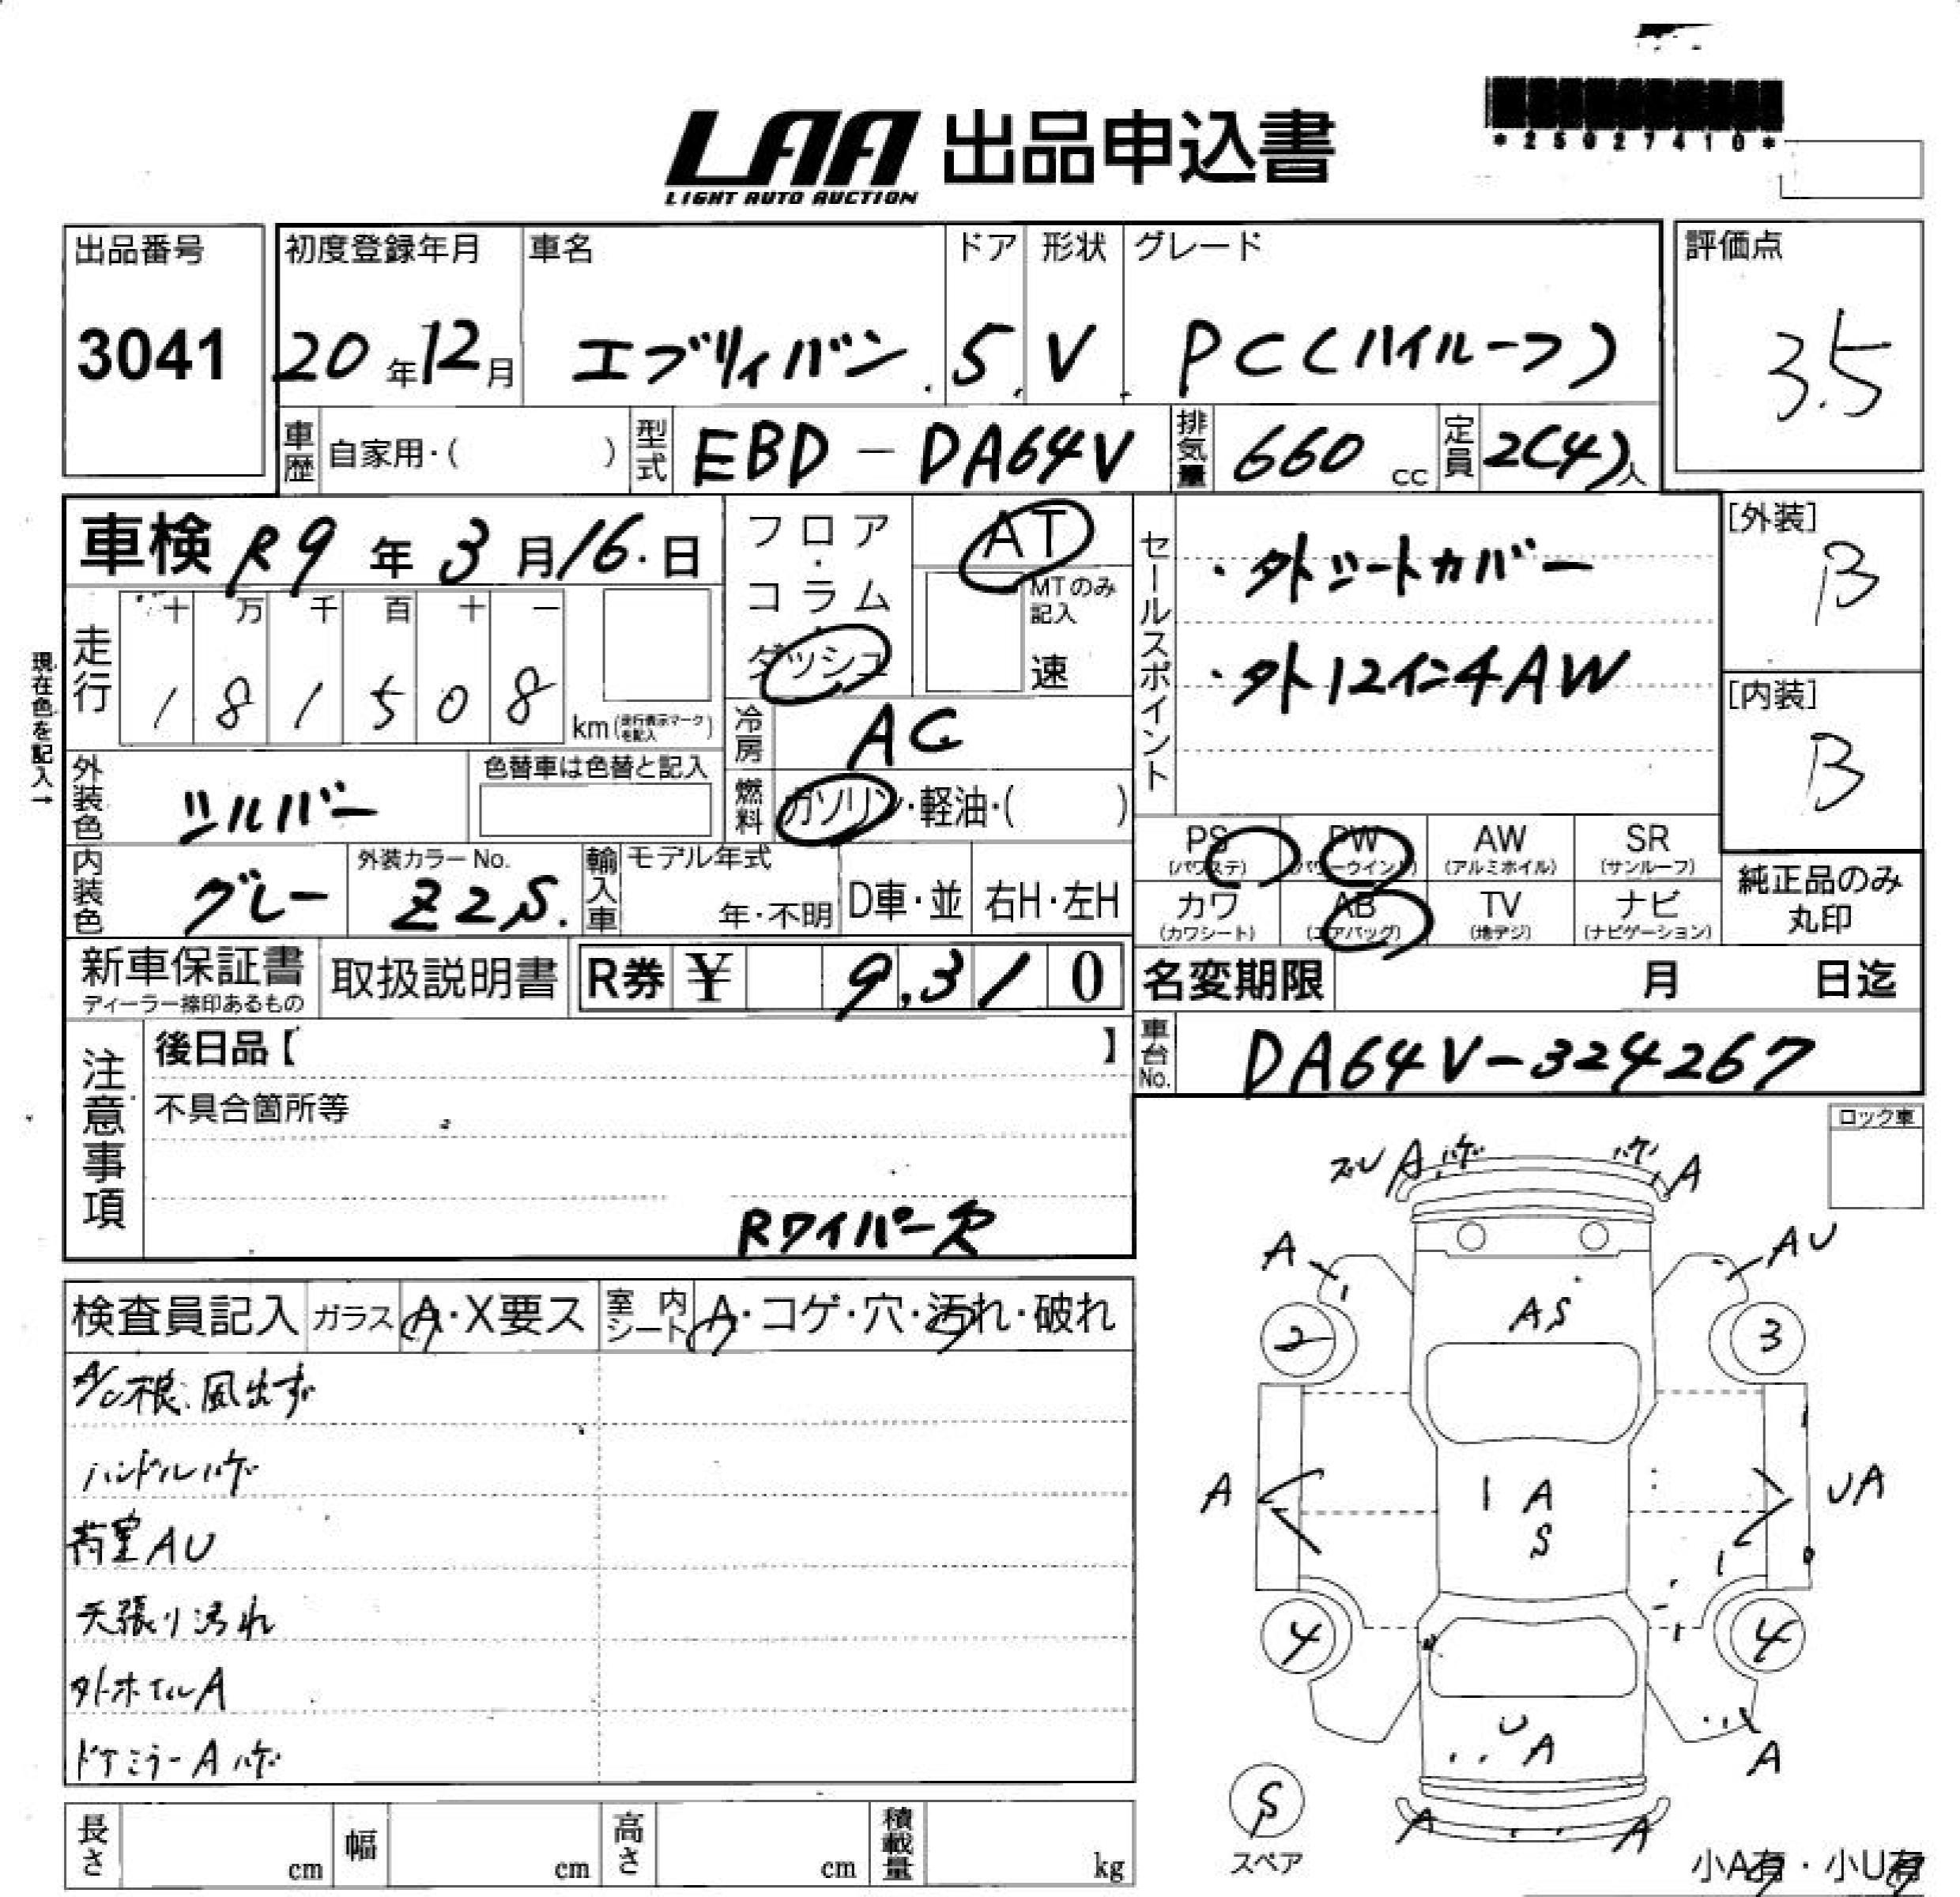 *25027410*
LAA 出品申込書
LIGHT AUTO AUCTION
出品番号 初度登録年月 車名 ドア 形状 グレード 評価点
3041 20年12月 エブリィバン 5 V PC(ハイルーフ) 3.5
車歴 自家用・( ) 型式 EBD-DA64V 排気量 660cc 定員 2(4)人
車検 R9年3月16日
走行 十 万 千 百 十 一
1 8 1 5 0 8 km(走行表示マークを記入)
現在色を記入→
外装色 シルバー 色替車は色替と記入
内装色 グレー 外装カラーNo. Z2S.
輸入車 モデル年式 年・不明 D車・並 右H・左H
フロア・コラム・ダッシュ
AT
MTのみ記入
速
冷房 AC
燃料 ガソリン・軽油・( )
セールスポイント
・外シートカバー
・外12インチAW
[外装]
B
[内装]
B
PS (パワステ) PW (パワーウインド) AW (アルミホイル) SR (サンルーフ)
カワ (カワシート) AB (エアバッグ) TV (地デジ) ナビ (ナビゲーション)
純正品のみ丸印
新車保証書 ディーラー捺印あるもの 取扱説明書 R券 ¥ 9,310
名変期限 月 日迄
車台No. DA64V-324267
注意事項
後日品【 】
不具合箇所等
Rワイパー欠
ロック車
検査員記入 ガラス A・X要ス 室内シート A・コゲ・穴・汚れ・破れ
A/C根、風出ず
ハンドルハゲ
荷室AU
天張り汚れ
外ホイルA
ドアミラーAハゲ
ズレ A ハゲ ハゲ A
A AU
AS
2 3
A A UA
S
4 4
U
A A
S
スペア
A A
小A有・小U有
長さ cm 幅 cm 高さ cm 積載量 kg